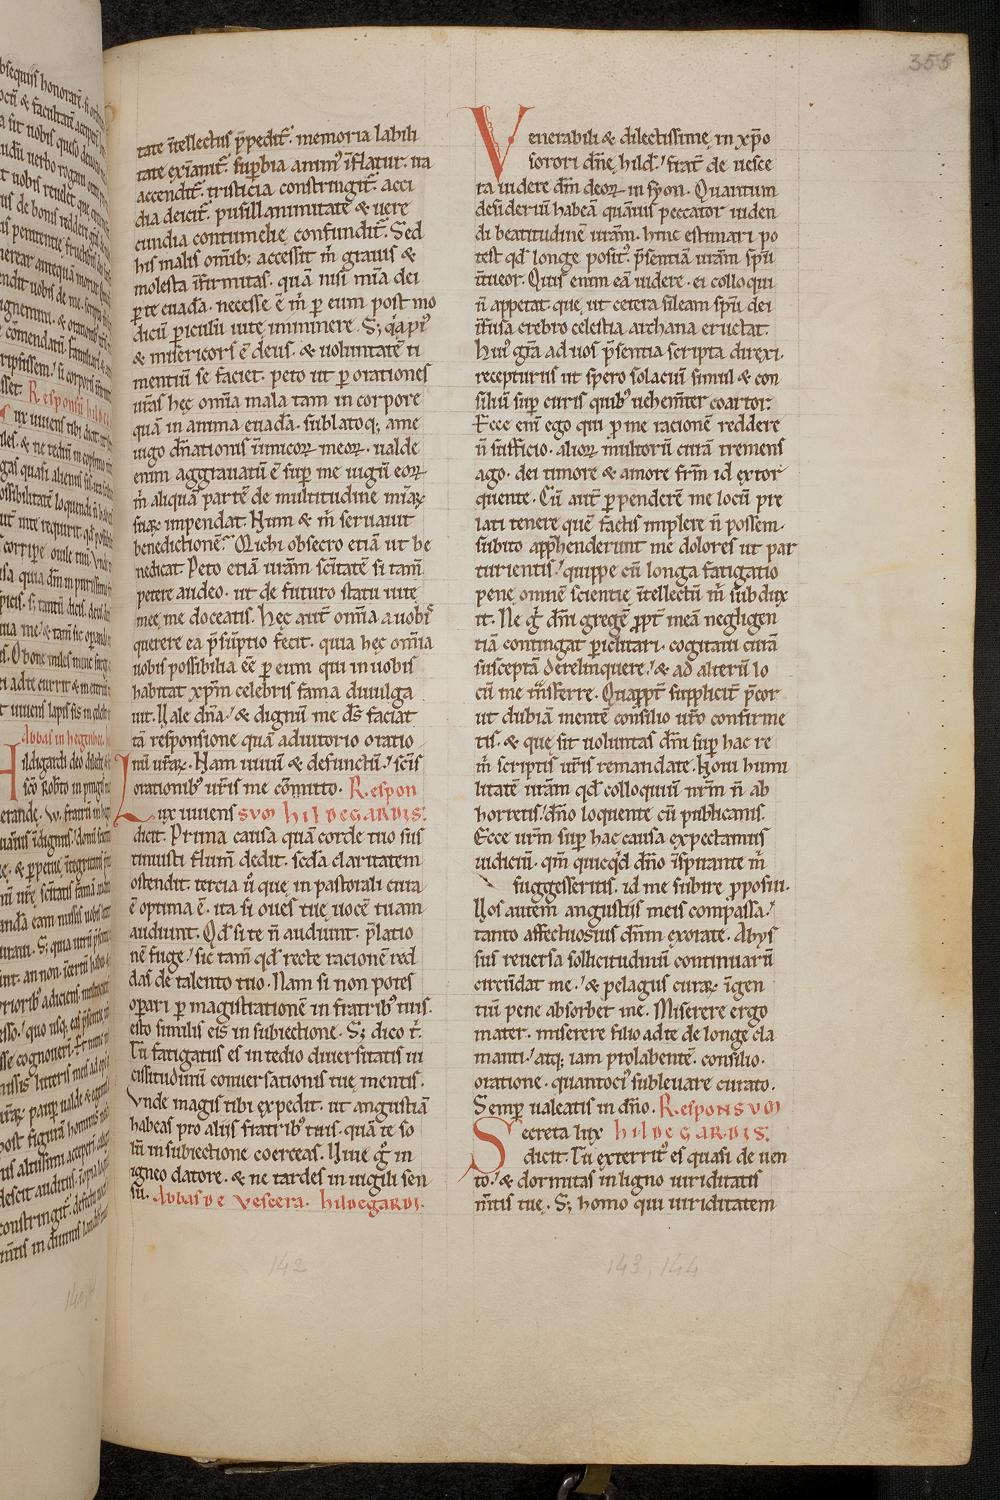 355
tate ītellectus p̄pedit᷑. memoria labili
tate exīanit᷑. suꝑbia animꝰ īflatur. ira
accendit᷑. tristicia constringit᷑. acci
dia deicit᷑. pusillanimitate & uere
cundia contumelię confundit᷑. Sed
his malis omībꝫ accessit m̄ grauis &
molesta īfirmitas. quā nisi mīa dei
ꝑ te euada. necesse ē m̄ ꝑ eum post mo
dicū ꝑiculū uitę imminere. Sꝫ q̄a piꝰ
& misericors ē deus. & uoluntatē ti
mentiū se faciet. peto ut ꝑ orationes
ur̄as hęc om̄ia mala tam in corpore
quā in anima euadā. sublatoq; a me
iugo dn̄ationis īimicoꝝ meoꝝ. ualde
enim aggrauatū ē suꝑ me iugū eoꝝ
m̄ aliquā partē de multitudine mīaꝝ
suaꝝ impendat. Num & m̄ seruauit
benedictionē? Michi obsecro etiā ut be
nedicat. Peto etiā ur̄am sc̄itatē si tam̄
petere audeo. ut de futuro statu uitę
meę me doceatis. Hęc aut̄ om̄ia a uobis
querere ea p̄sūptio fecit. quia hęc om̄ia
uobis possibilia eē ꝑ eum qui in uobis
habitat xp̄m celebris fama diuulga
uit. Uale dn̄a. & dignū me dꝰ faciat
tā responsione quā adiutorio oratio
nū ur̄aꝝ. Nam uiuū & defunctū. sc̄is
orationibꝰ ur̄is me cōmitto. Respon
Lux uiuens suō hildegardis:
dicit. Prima causa quā corde tuo sus
tinuisti flum̄ dedit. scd̄a claritatem
ostendit. tercia u̾ que in pastorali cura
ē optima ē. ita si oues tuę uocē tuam
audiunt. Qd̄ si te n̄ audiunt. p̄latio
nē fuge. sic tam̄ qd̄ recte racionē red
das de talento tuo. Nam si non potes
oꝑari ꝑ magistrationē in fratribꝰ tuis.
esto similis eis in subiectione. Sꝫ dico t̄.
Tu fatigatus es in tedio diuersitatis ui
cissitudinū conuersationis tuę mentis.
Unde magis tibi expedit. ut angustiā
habeas pro aliis fratribꝰ tuis. quā te so
lū in subiectione coerceas. Uiue g̊ in
igneo datore. & ne tardes in uigili sen
su. Abbas de Vescera. hildegardi.
Venerabili & dilectissimę in xp̄o
sorori dn̄ę hild. frat̄ de uesce
ra uidere dm̄ deoꝝ in syon. Quantum
desideriū habeā quāuis peccator uiden
di beatitudinē ur̄am. hinc estimari po
test qd̄ longe positꝰ. p̄sentiā ur̄am sp̄u
ītueor. Quis enim eā uidere. ei colloqui
n̄ appetat. que ut cetera sileam sp̄u dei
īfusa crebro celestia archana eructat.
Huiꝰ gr̄a ad uos p̄sentia scripta direxi.
recepturus ut spero solaciū simul & con
siliū suꝑ curis quibꝰ uehem̄ter coartor.
Ecce eni̅ ego qui ꝑ me racionē reddere
n̄ sufficio. alioꝝ multorū curā tremens
ago. dei timore & amore fr̄m id extor
quente. Cū aut̄ ꝑpenderē me locū pre
lati tenere quē factis implere n̄ possem.
subito app̄henderunt me dolores ut par
turientis. quippe cū longa fatigatio
pene omnē scientię ītellectū m̄ subdux
it. Ne g̊ dn̄i gregē ꝓpt̄ meā negligen
tiā contingat ꝑiclitari. cogitaui curā
susceptā derelinquere. & ad alterū lo
cū me trāsferre. Quappt̄ supplicit̄ p̄cor
ut dubiā mentē consilio ur̄o confirme
tis. & que sit uoluntas dn̄i suꝑ hac re
m̄ scriptis ur̄is remandate. Noui humi
litatē ur̄am qd̄ colloquiū nr̄m n̄ ab
horretis. dn̄o loquente cū publicanis.
Ecce ur̄m suꝑ hac causa expectamus
iudiciū. qm̄ quicqd̄ dn̄o īspirante m̄
suggesseritis. id me subire ꝓposui.
Uos autem angustiis meis compassa.
tanto affectuosius dn̄m exorate. Abys
sus reuersa sollicitudinū continuarū
circūdat me. & pelagus curaꝝ īgen
tiū pene absorbet me. Miserere ergo
mater. miserere filio ad te de longe cla
manti. atq; iam prolabentē. consilio.
oratione. quantociꝰ subleuare curato.
Semꝑ ualeatis in dn̄o. Responsuō
Secreta lux hildegardis:
dicit. Tu exterritꝰ es quasi de uen
to. & dormitas in ligno uiriditatis
m̄tis tuę. Sꝫ homo qui uiriditatem
142
143, 144